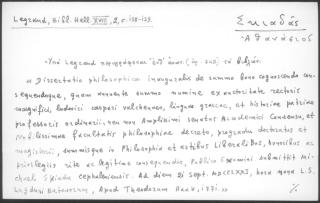 Legrand, Bibl. Hell. XVIII, 2, σ. 158-159.
Σκιαδάς
Ἀθανάσιος
Ὑπὸ Legrand περιγράφεται "ἐπ' ... (ἀρ. 793) τὸ βιβλίον:
« Dissertatio philosophica inauguralis de summo bono cognoscendo con-
sequendoque, quam annuente summo numine ex auctoritate rectoris
magnifici, Ludovici Caspari Valckenaer, linguae graecae, et historiae patriae
professoris ordinarii, nec non Amplissimi senatus Academici Consensu, et
nobilissimae facultatis philosophicae decreto, pro gradu doctoratus et
magisterii, summisque in Philosophia et artibus Liberalibus, honoribus ac
privilegiis rite ac legitime consequendis, Publico Examini submittit Mi-
chael Skiadan cephaleniensis. Ad diem 21 Sept. MDCCLXXI, hora nona L.S.
Lugduni Batavorum, Apud Theodorum Haak, 1771. »